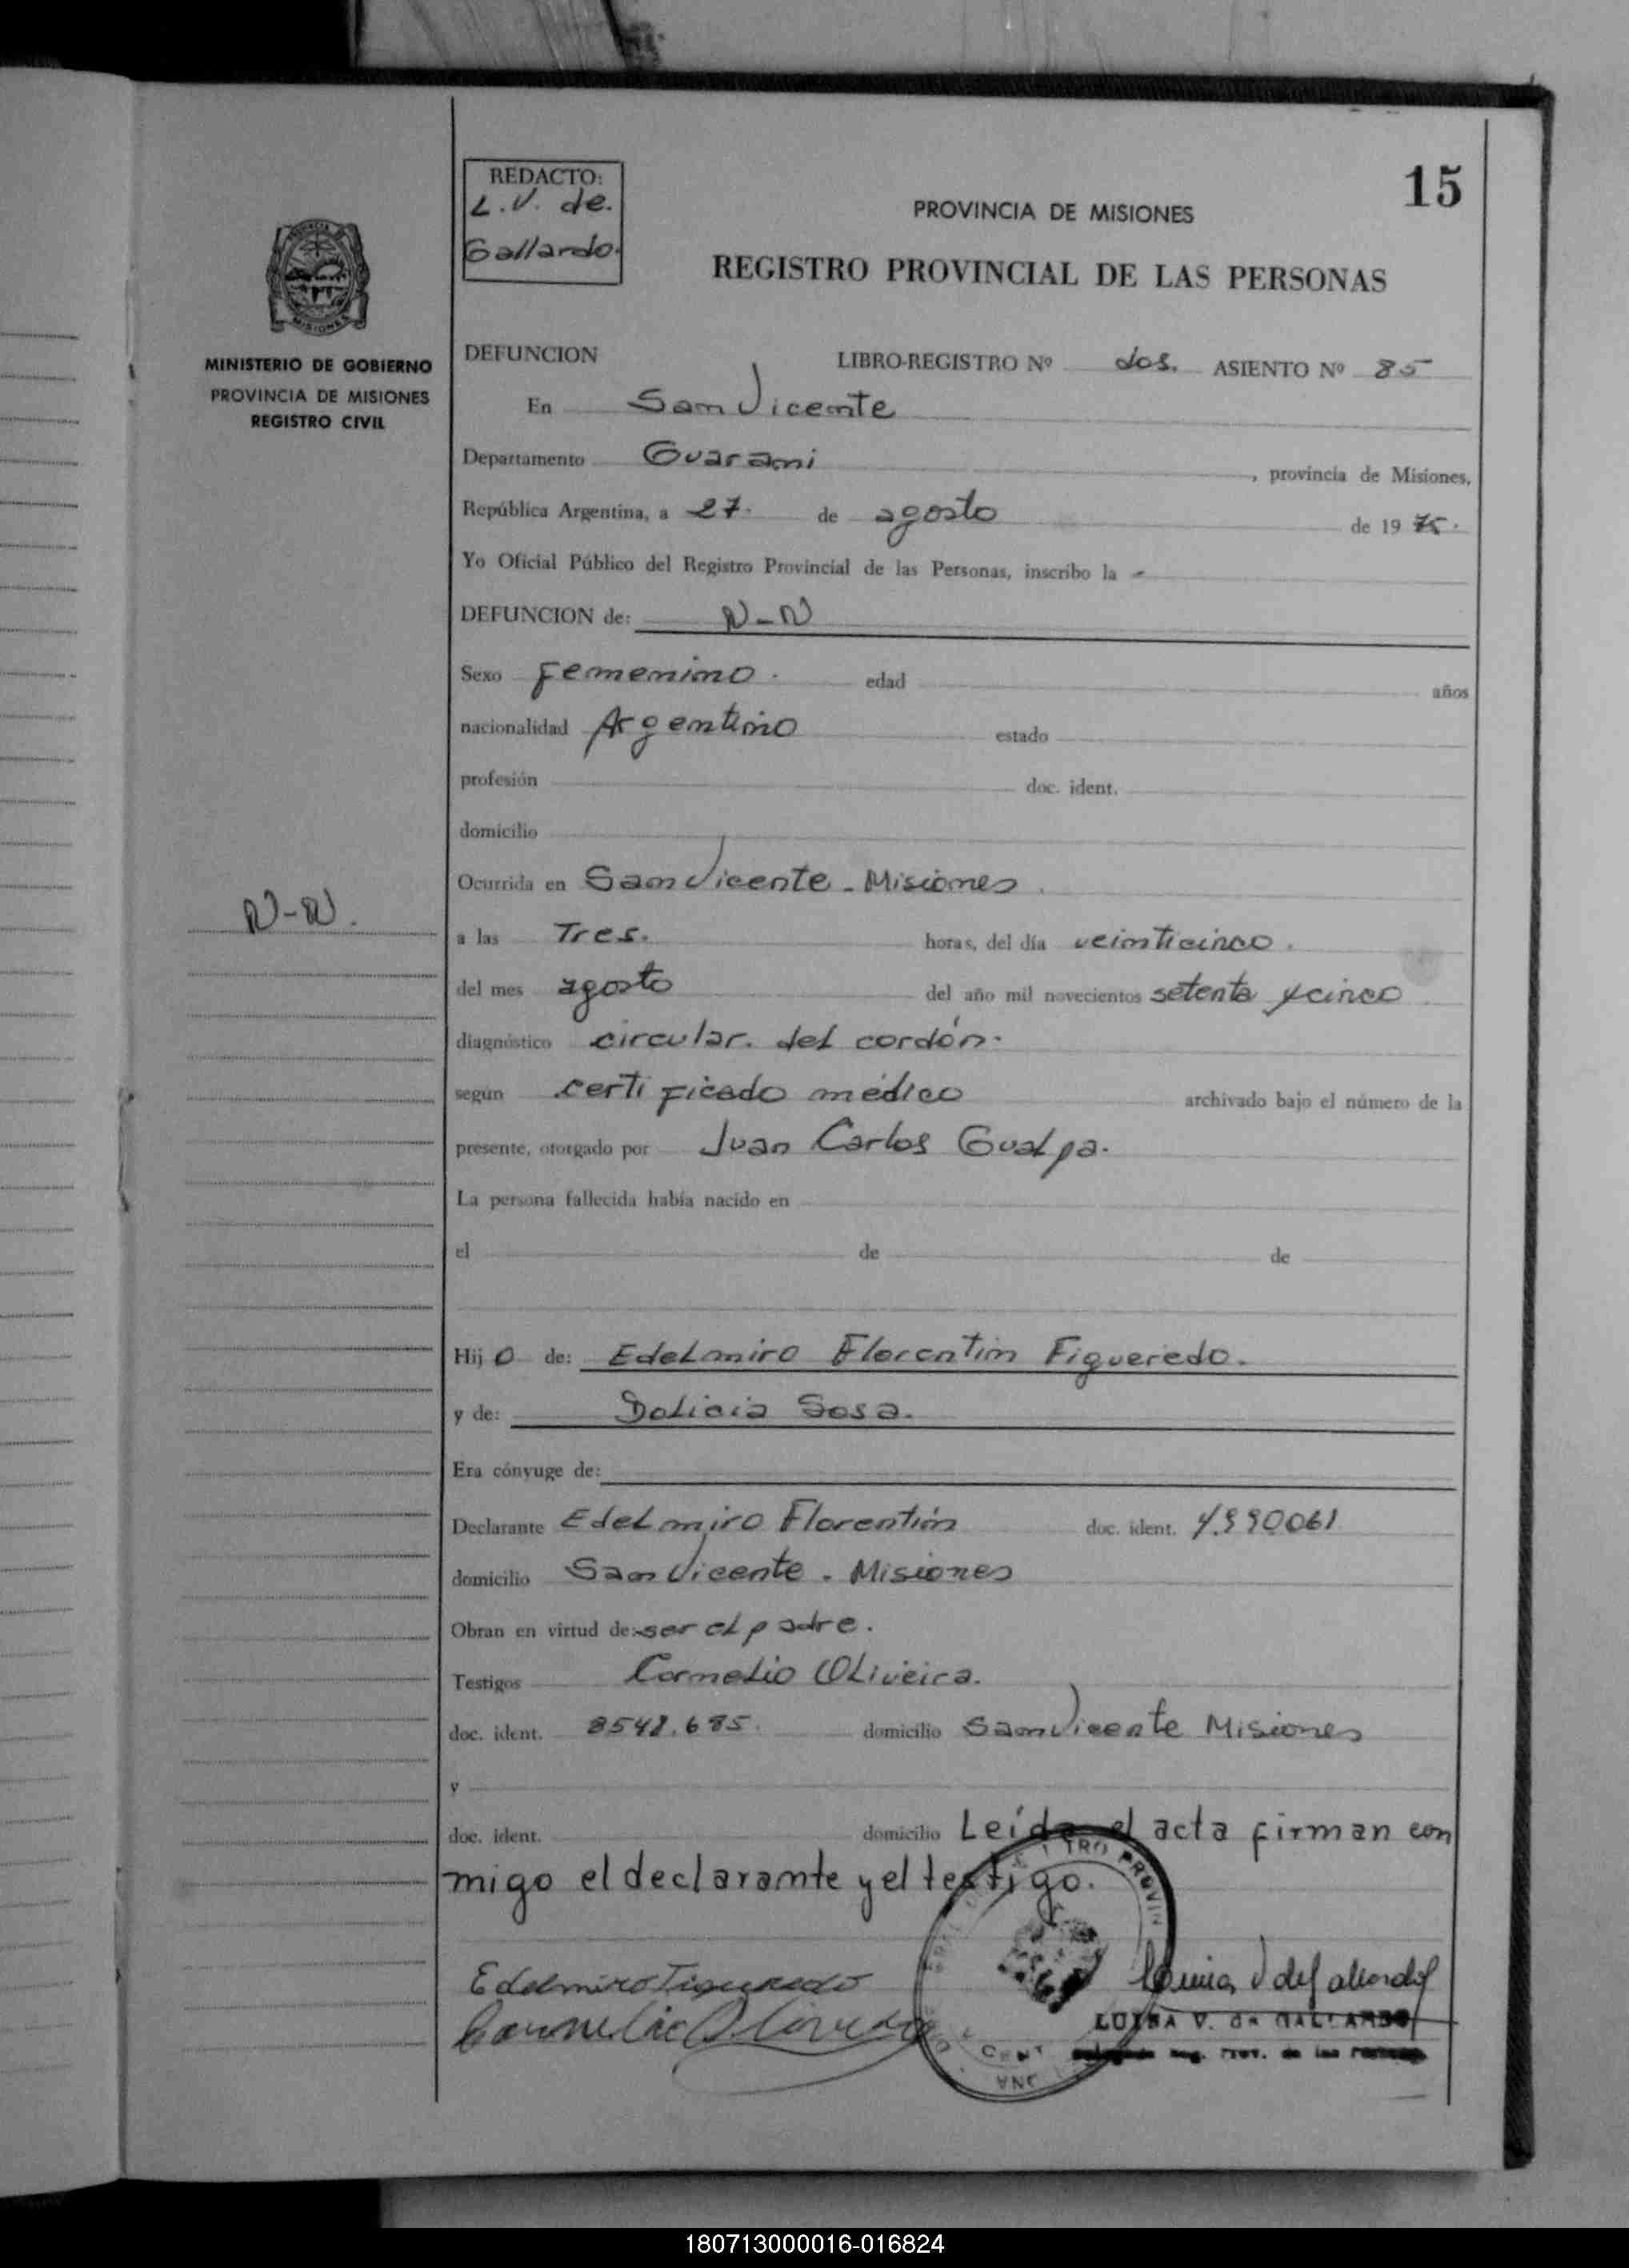 15
REDACTO:
L.V. de.
Gallardo.
PROVINCIA DE MISIONES
REGISTRO PROVINCIAL DE LAS PERSONAS
MISIONES
MINISTERIO DE GOBIERNO
PROVINCIA DE MISIONES
REGISTRO CIVIL
DEFUNCION LIBRO-REGISTRO Nº dos. ASIENTO Nº 85
En San Vicente
Departamento Guarani, provincia de Misiones,
República Argentina, a 27. de agosto de 1975.
Yo Oficial Público del Registro Provincial de las Personas, inscribo la -
DEFUNCION de: N-N
Sexo Femenino. edad años
nacionalidad Argentino estado
profesión doc. ident.
domicilio
Ocurrida en San Vicente - Misiones.
N-N.
a las Tres. horas, del día veinticinco.
del mes agosto del año mil novecientos setenta y cinco
diagnóstico circular. del cordón.
según certificado médico archivado bajo el número de la
presente, otorgado por Juan Carlos Gualpa.
La persona fallecida había nacido en
el de de
Hijo de: Edelmiro Florentin Figueredo.
y de: Dolicia Sosa.
Era cónyuge de:
Declarante Edelmiro Florentín doc. ident.
domicilio San Vicente. Misiones
Obran en virtud de: ser el padre.
Testigos Cornelio Oliveira.
doc. ident. 8541.685. domicilio San Vicente Misiones
y
doc. ident. domicilio Leída el acta firman con
migo el declarante y el testigo.
Edelmiro Figueredo
Cornelio Oliveira
Luisa V de Gallardo
LUISA V. de GALLARDO
Reg. Prov. de las Personas
180713000016-016824